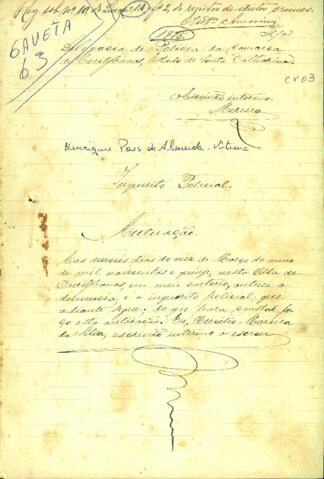 GAVETA
63
1915
CX 03
Delegacia de Policia da Comarca
de Curitibanos, Estado de Santa Catharina.
Escrivão interino
Moreira
Henrique Paes de Almeida - Vitima
Inquerito Policial.
Autuação.
dias do mez de Março do anno
de mil novecentos e quinze, nesta Villa de
Curitibanos, em meu cartorio, autuei a
denuncia e o inquerito policial que
adiante segue; do que para constar fa-
ço esta autuação. Eu, Moreira
da Silva, escrivão interino o escrevi